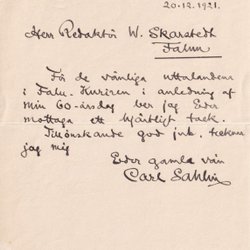 20.12.1921.
Herr Redaktör W. Skarstedt
Falun
För de vänliga uttalandena
i Falu-Kuriren i anledning af
min 60-årsdag ber jag Eder
mottaga ett hjärtligt tack.
Tillönskande god jul, tecknar
jag mig
Eder gamle vän
Carl Sahlin